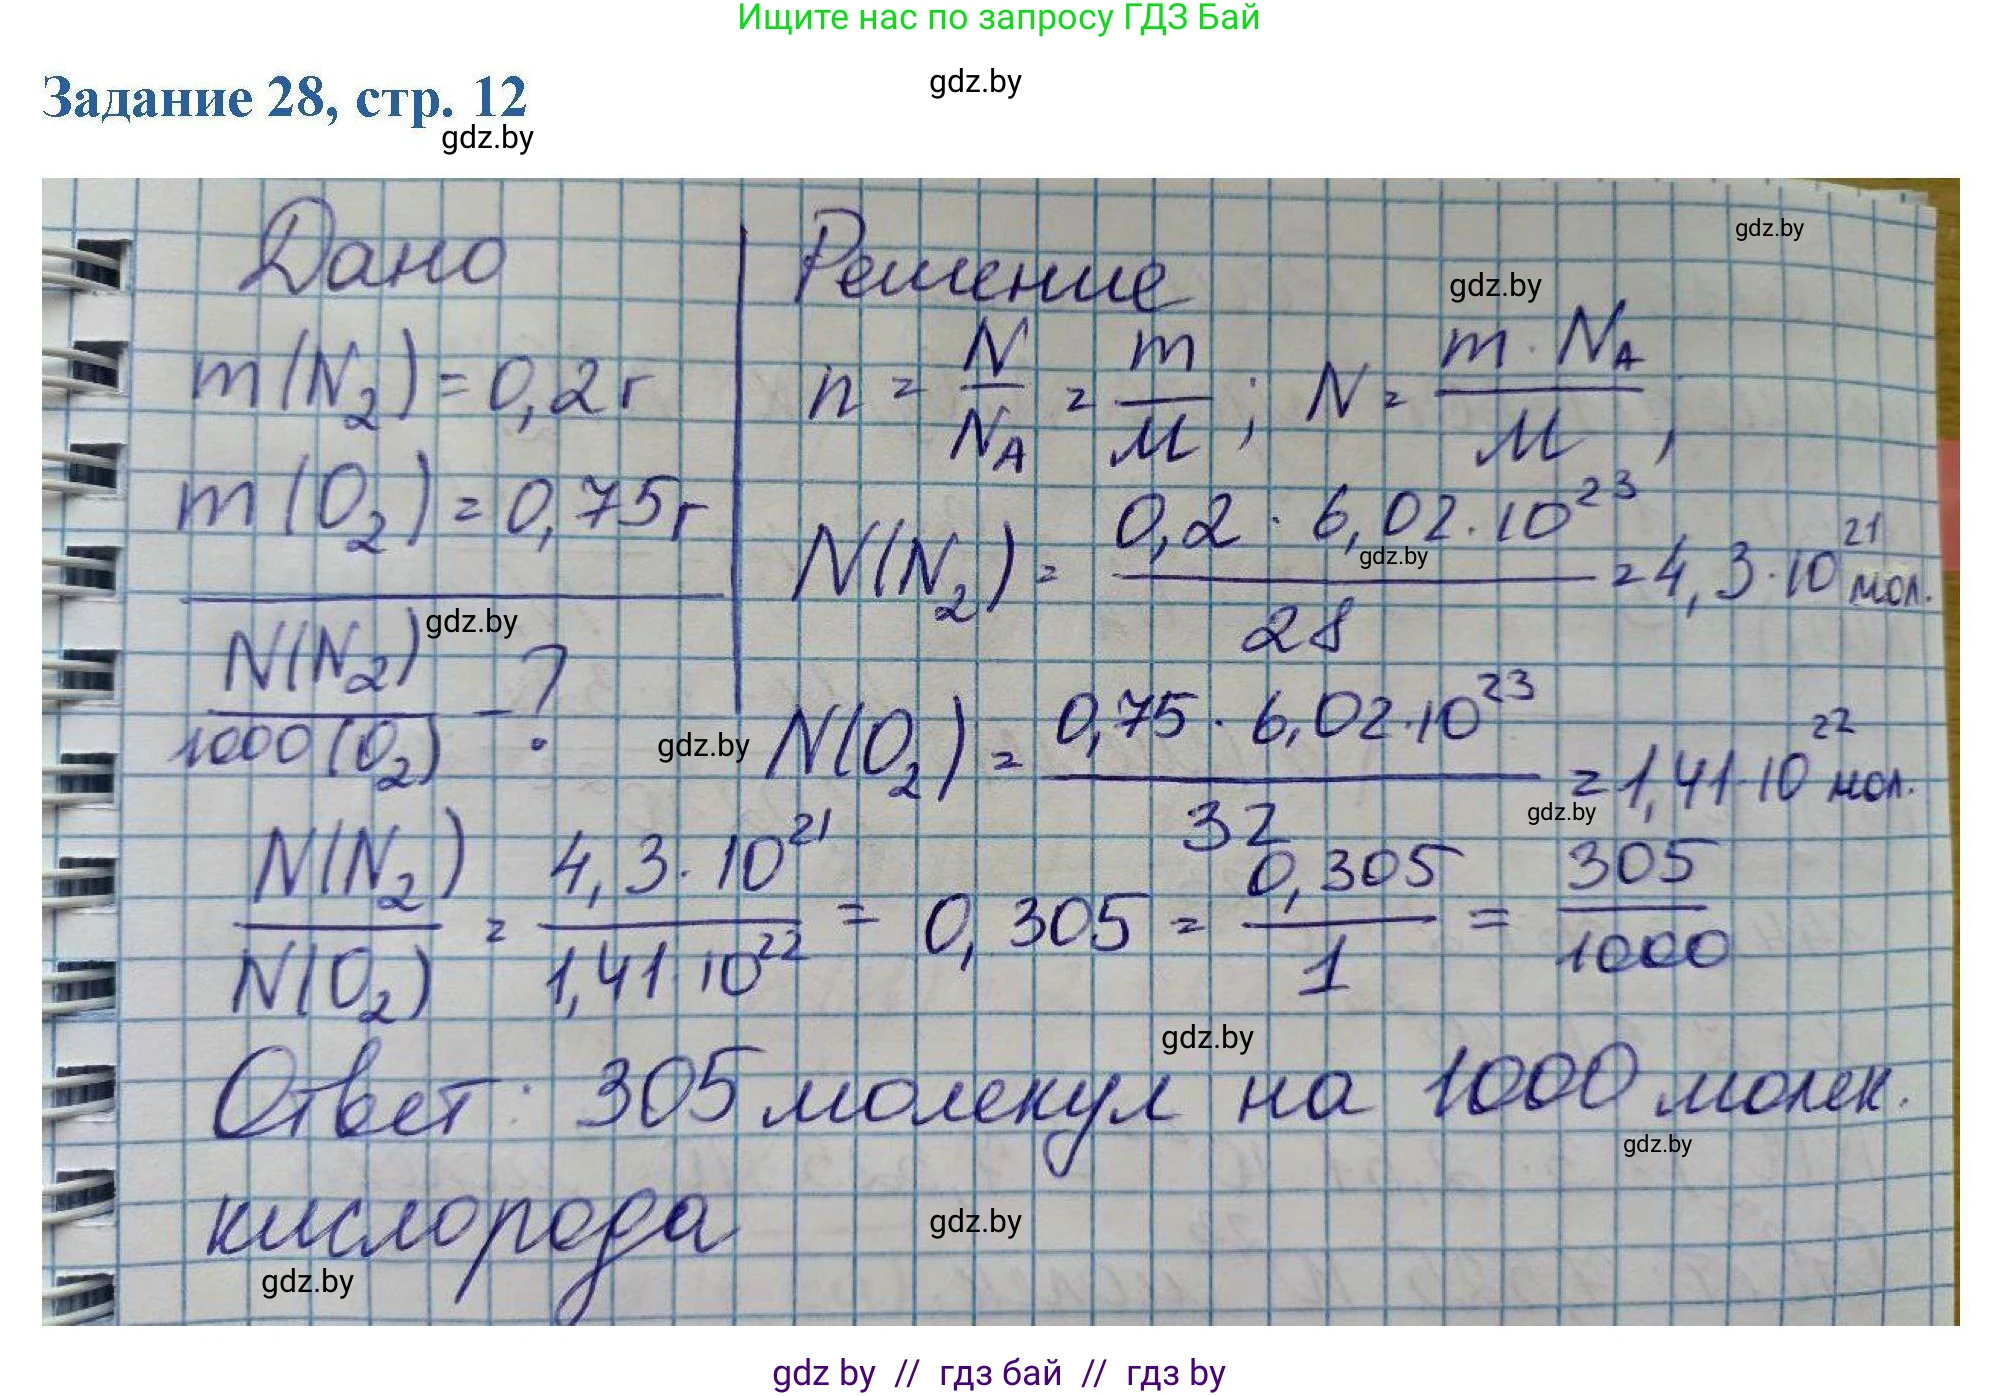 Ищите нас по запросу ГДЗ Бай
gdz.by
Задание 28, стр. 12
gdz.by
gdz.by
Дано
m(N₂) = 0,2 г
m(O₂) = 0,75 г
gdz.by
N(N₂) / 1000(O₂) - ?
Решение
gdz.by
n = N / N_A = m / M ; N = m · N_A / M ;
N(N₂) = 0,2 · 6,02 · 10²³ / 28 = 4,3 · 10²¹ мол.
gdz.by
gdz.by
N(O₂) = 0,75 · 6,02 · 10²³ / 32 = 1,41 · 10²² мол.
gdz.by
N(N₂) / N(O₂) = 4,3 · 10²¹ / 1,41 · 10²² = 0,305 = 0,305 / 1 = 305 / 1000
gdz.by
Ответ: 305 молекул на 1000 молек.
gdz.by
кислорода
gdz.by
gdz.by
gdz by // гдз бай // гдз by